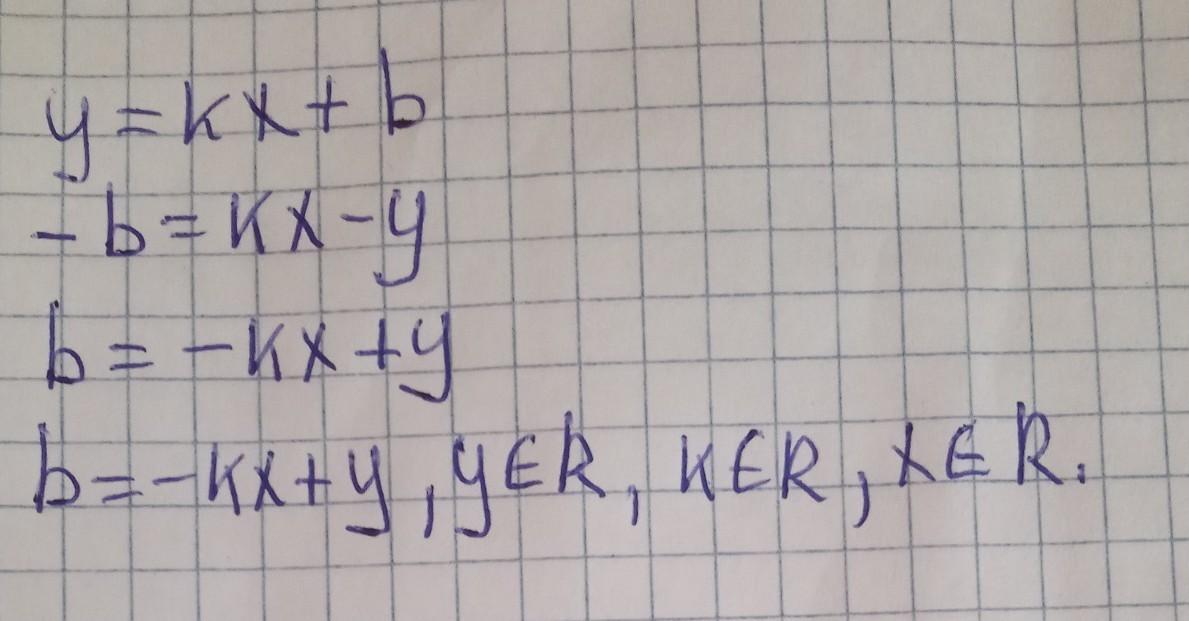 y = kx + b
- b = kx - y
b = - kx + y
b = - kx + y , y ∈ R , k ∈ R , x ∈ R .